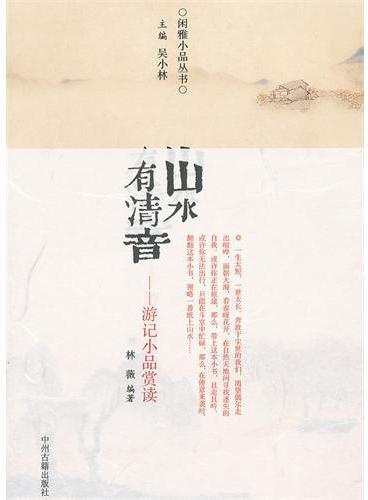 ○闲雅小品丛书○
主编 吴小林
山水
有清音
——游记小品赏读
林薇 编著
◎ 一生太短，一世太长。奔波于尘世的我们，渴望偶尔走
出喧哗，面朝大海，看春暖花开，在自然天地间寻找迷失的
自我。或许你正在旅途，那么，带上这本小书，且走且吟，
或许你无法出行，只能在斗室中忙碌，那么，在倦意来袭时，
翻翻这本小书，领略一番纸上山水……
中州古籍出版社